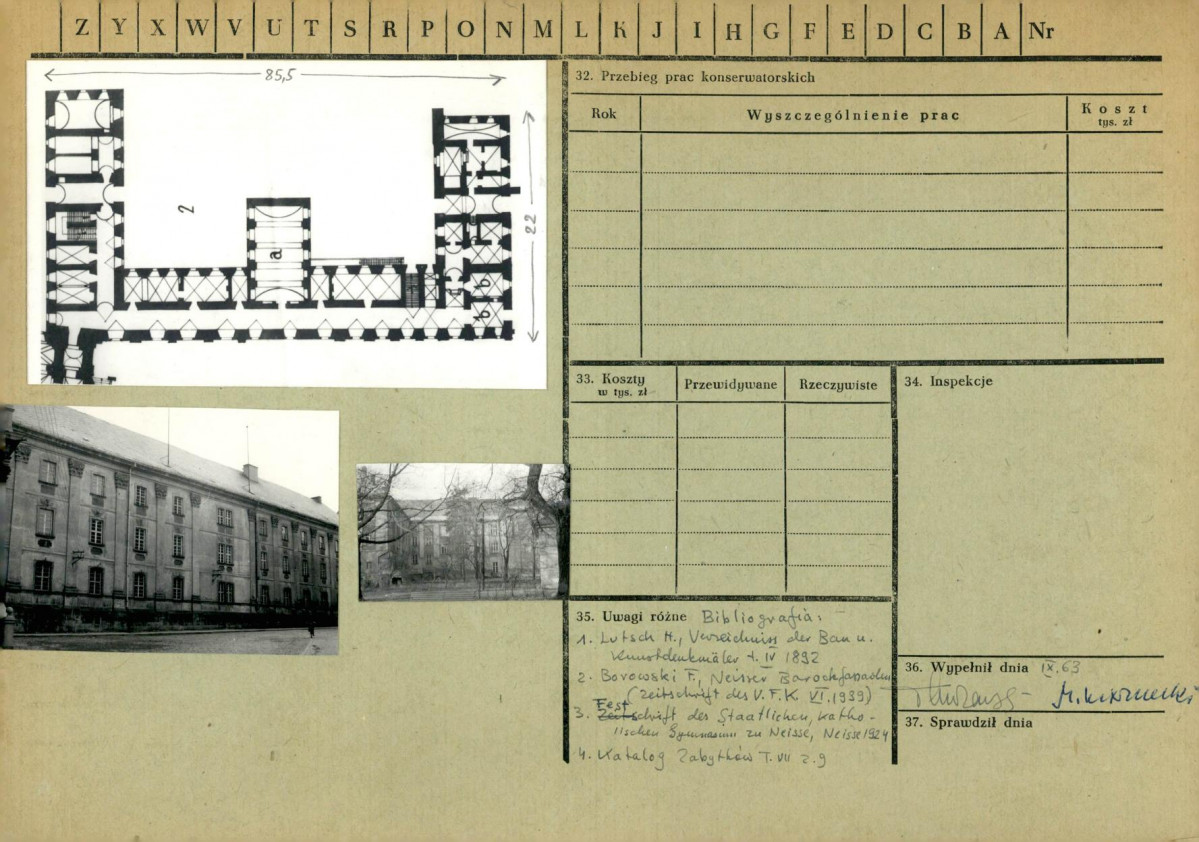 Z Y X W V U T S R P O N M L K J I H G F E D C B A Nr
85,5
22
2
a
b
b
32. Przebieg prac konserwatorskich
Rok
Wyszczególnienie prac
Koszt
tys. zł
33. Koszty
w tys. zł
Przewidywane
Rzeczywiste
34. Inspekcje
35. Uwagi różne Bibliografia:
1. Lutsch H., Verzeichniss der Bau u.
Kunstdenkmäler t. IV 1892
2. Borowski F., Neisser Barockfassaden
(Zeitschrift des V.F.K. VI.1939)
3. Festschrift des Staatlichen, katho-
lischen Gymnasium zu Neisse, Neisse 1924
4. Katalog Zabytków T. VII z. 9
36. Wypełnił dnia IX.63
37. Sprawdził dnia